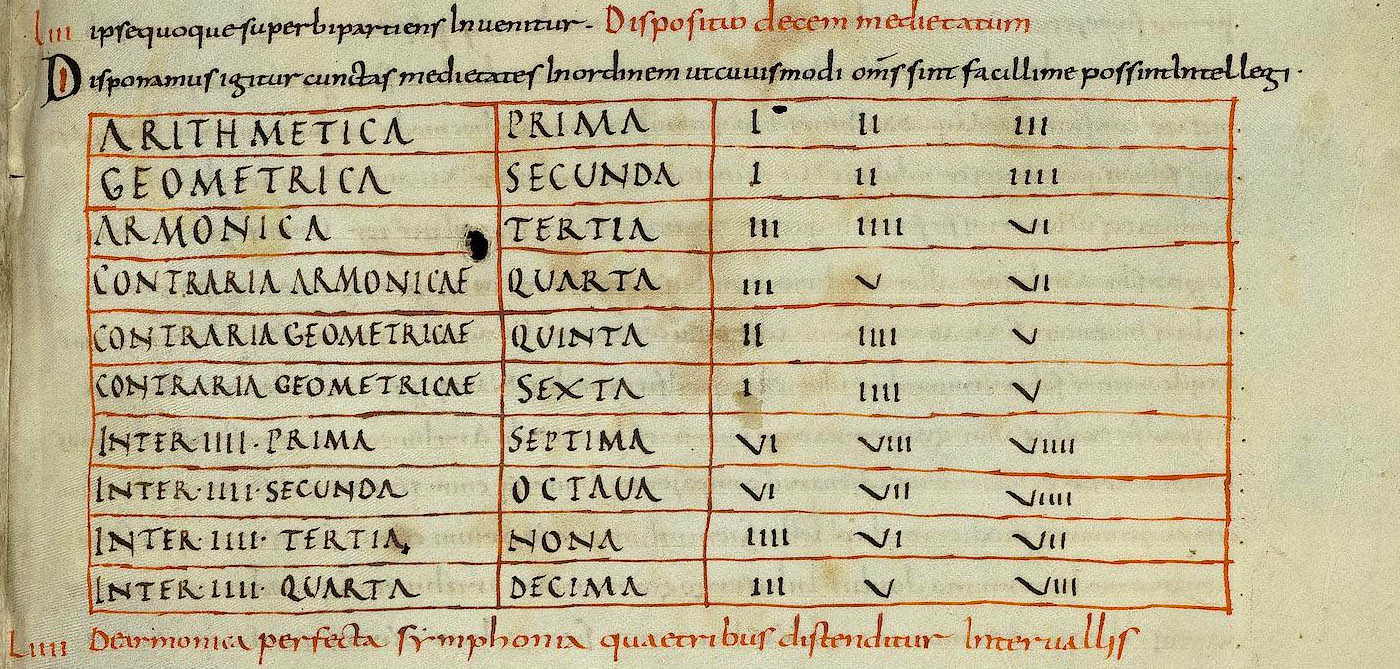 Liii ipse quoque superbipartiens Invenitur. Dispositio decem medietatum
Disponamus igitur cunctas medietates In ordinem ut cuiusmodi om̄s sint facillime possint Intellegi.
ARITHMETICA PRIMA I II III
GEOMETRICA SECUNDA I II IIII
ARMONICA TERTIA III IIII VI
CONTRARIA ARMONICAE QUARTA III V VI
CONTRARIA GEOMETRICAE QUINTA II IIII V
CONTRARIA GEOMETRICAE SEXTA I IIII V
INTER·IIII·PRIMA SEPTIMA VI VIII VIIII
INTER·IIII·SECUNDA OCTAUA VI VII VIIII
INTER·IIII·TERTIA, NONA IIII VI VII
INTER·IIII·QUARTA DECIMA III V VIII
Liiii De armonica perfecta symphonia quae tribus distenditur Intervallis